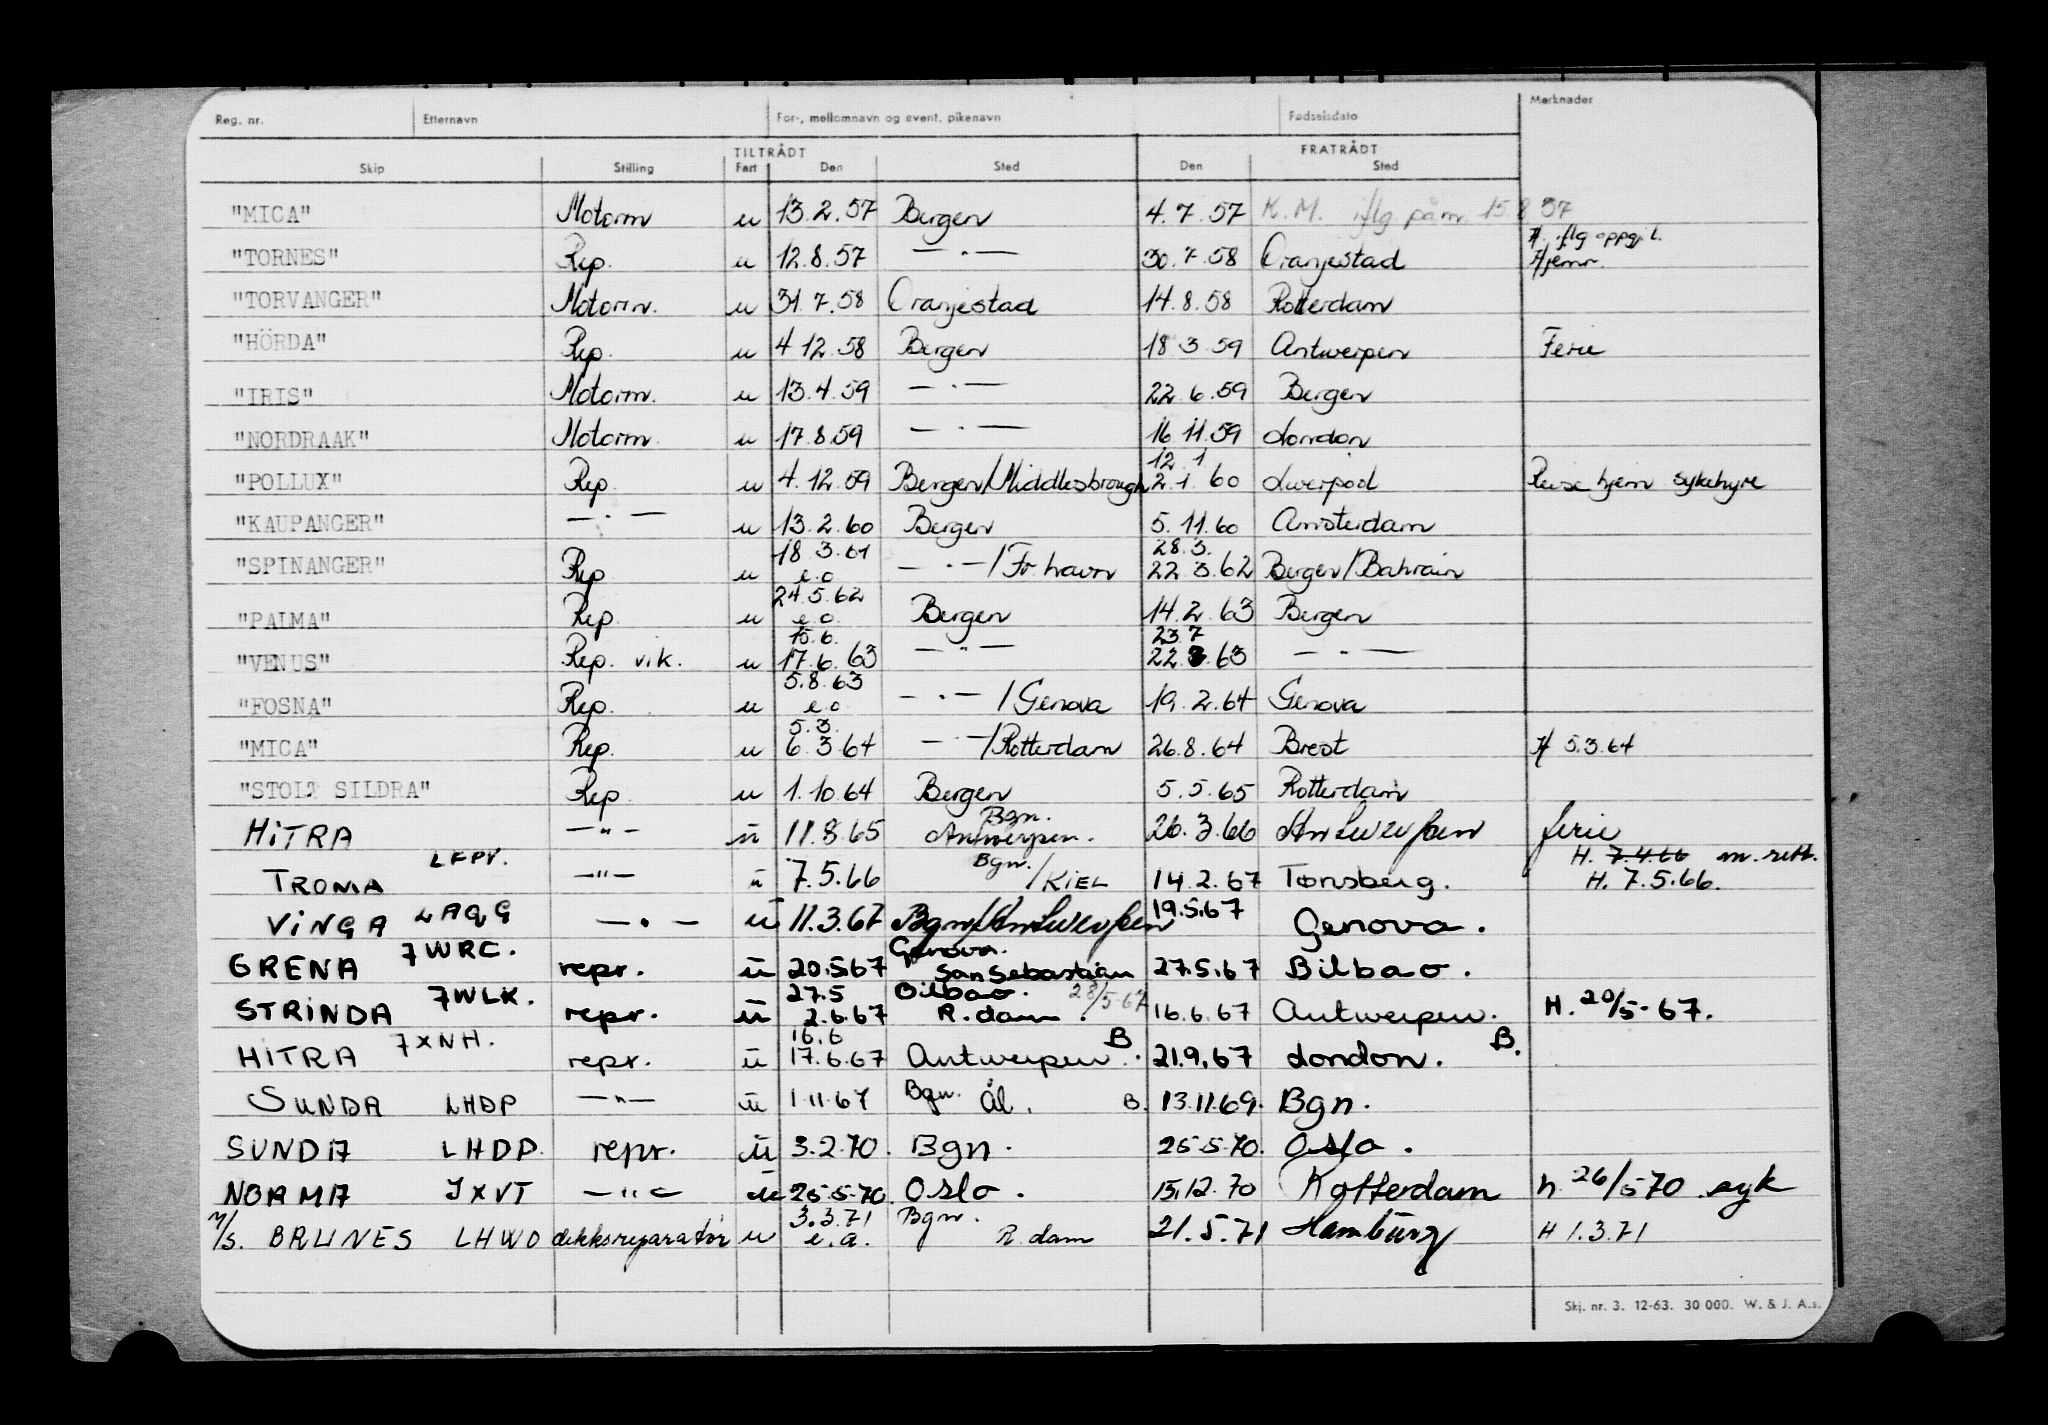 Reg. nr. Etternavn For-, mellomnavn og event. pikenavn Fødselsdato Merknader
TILTRÅDT FRATRÅDT
Skip Stilling Fart Den Sted Den Sted
"MICA" Motorm u 13.2.57 Bergen 4.7.57 K.M. iflg påm. 15.8.57
"TORNES" Rep. u 12.8.57 — " — 30.7.58 Oranjestad H. iflg oppgj. Hjemr.
"TORVANGER" Motorm. u 31.7.58 Oranjestad 14.8.58 Rotterdam
"HÖRDA" Rep. u 4 12.58 Bergen 18 3.59 Antwerpen Ferie
"IRIS" Motorm. u 13.4.59 — " — 22.6.59 Bergen
"NORDRAAK" Motorm. u 17.8.59 — " — 16 11.59 London
"POLLUX" Rep. u 4.12.59 Bergen/Middlesbrough 12.1 2.1.60 Liverpool Reise hjem sykehyre
"KAUPANGER" — " — u 13.2.60 Bergen 5.11.60 Amsterdam
"SPINANGER" Rep u 18 3.61 e.o — " — /Fr havn 28.3. 22 3.62 Bergen/Bahrain
"PALMA" Rep. u 24.5.62 e.o. Bergen 14.2.63 Bergen
"VENUS" Rep. vik. u 15.6. 17.6.63 — " — 23.7 22 .63 — " —
"FOSNA" Rep. u 5.8.63 e.o — " — /Genova 19.2.64 Genova
"MICA" Rep. u 5.3. 6.3.64 — " — /Rotterdam 26.8.64 Brest H 5.3.64
"STOLT SILDRA" Rep. u 1.10.64 Bergen 5.5.65 Rotterdam
HITRA — " — u 11.8.65 Bgn. Antwerpen. 26.3.66 Antwerpen ferie
TROMA LFPV. — " — u 7.5.66 Bgn. /KIEL 14.2.67 Tønsberg. H. 7.4.66 m. rett. H. 7.5.66.
VINGA LAQG — " — u 11.3.67 Bgn/Antwerpen 19.5.67 Genova.
GRENA 7WRC. repr. u 20.5.67 Genova. San Sebastian 27.5.67 Bilbao.
STRINDA 7WLK. repr. u 27.5 2.6.67 Bilbao. R.dam. 28/5-67 16.6.67 Antwerpen. H. 20/5-67.
HITRA 7XNH. repr. u 16.6 17.6.67 Antwerpen. B 21.9.67 London. B.
SUNDA LHDP — " — u 1.11.67 Bgn. Ål. B. 13.11.69. Bgn.
SUNDA LHDP. repr. u 3.2.70. Bgn. 25.5.70. Oslo.
NORMA JXVT — " — u 25.5.70. Oslo. 15.12.70 Rotterdam h 26/5 70 syk
M/S. BRUNES LHWO dekksreparatør u 3.3.71 e.a. Bgn. R.dam 21.5.71 Hamburg H 1.3.71
Skj. nr. 3. 12-63. 30 000. W. & J. A.s.